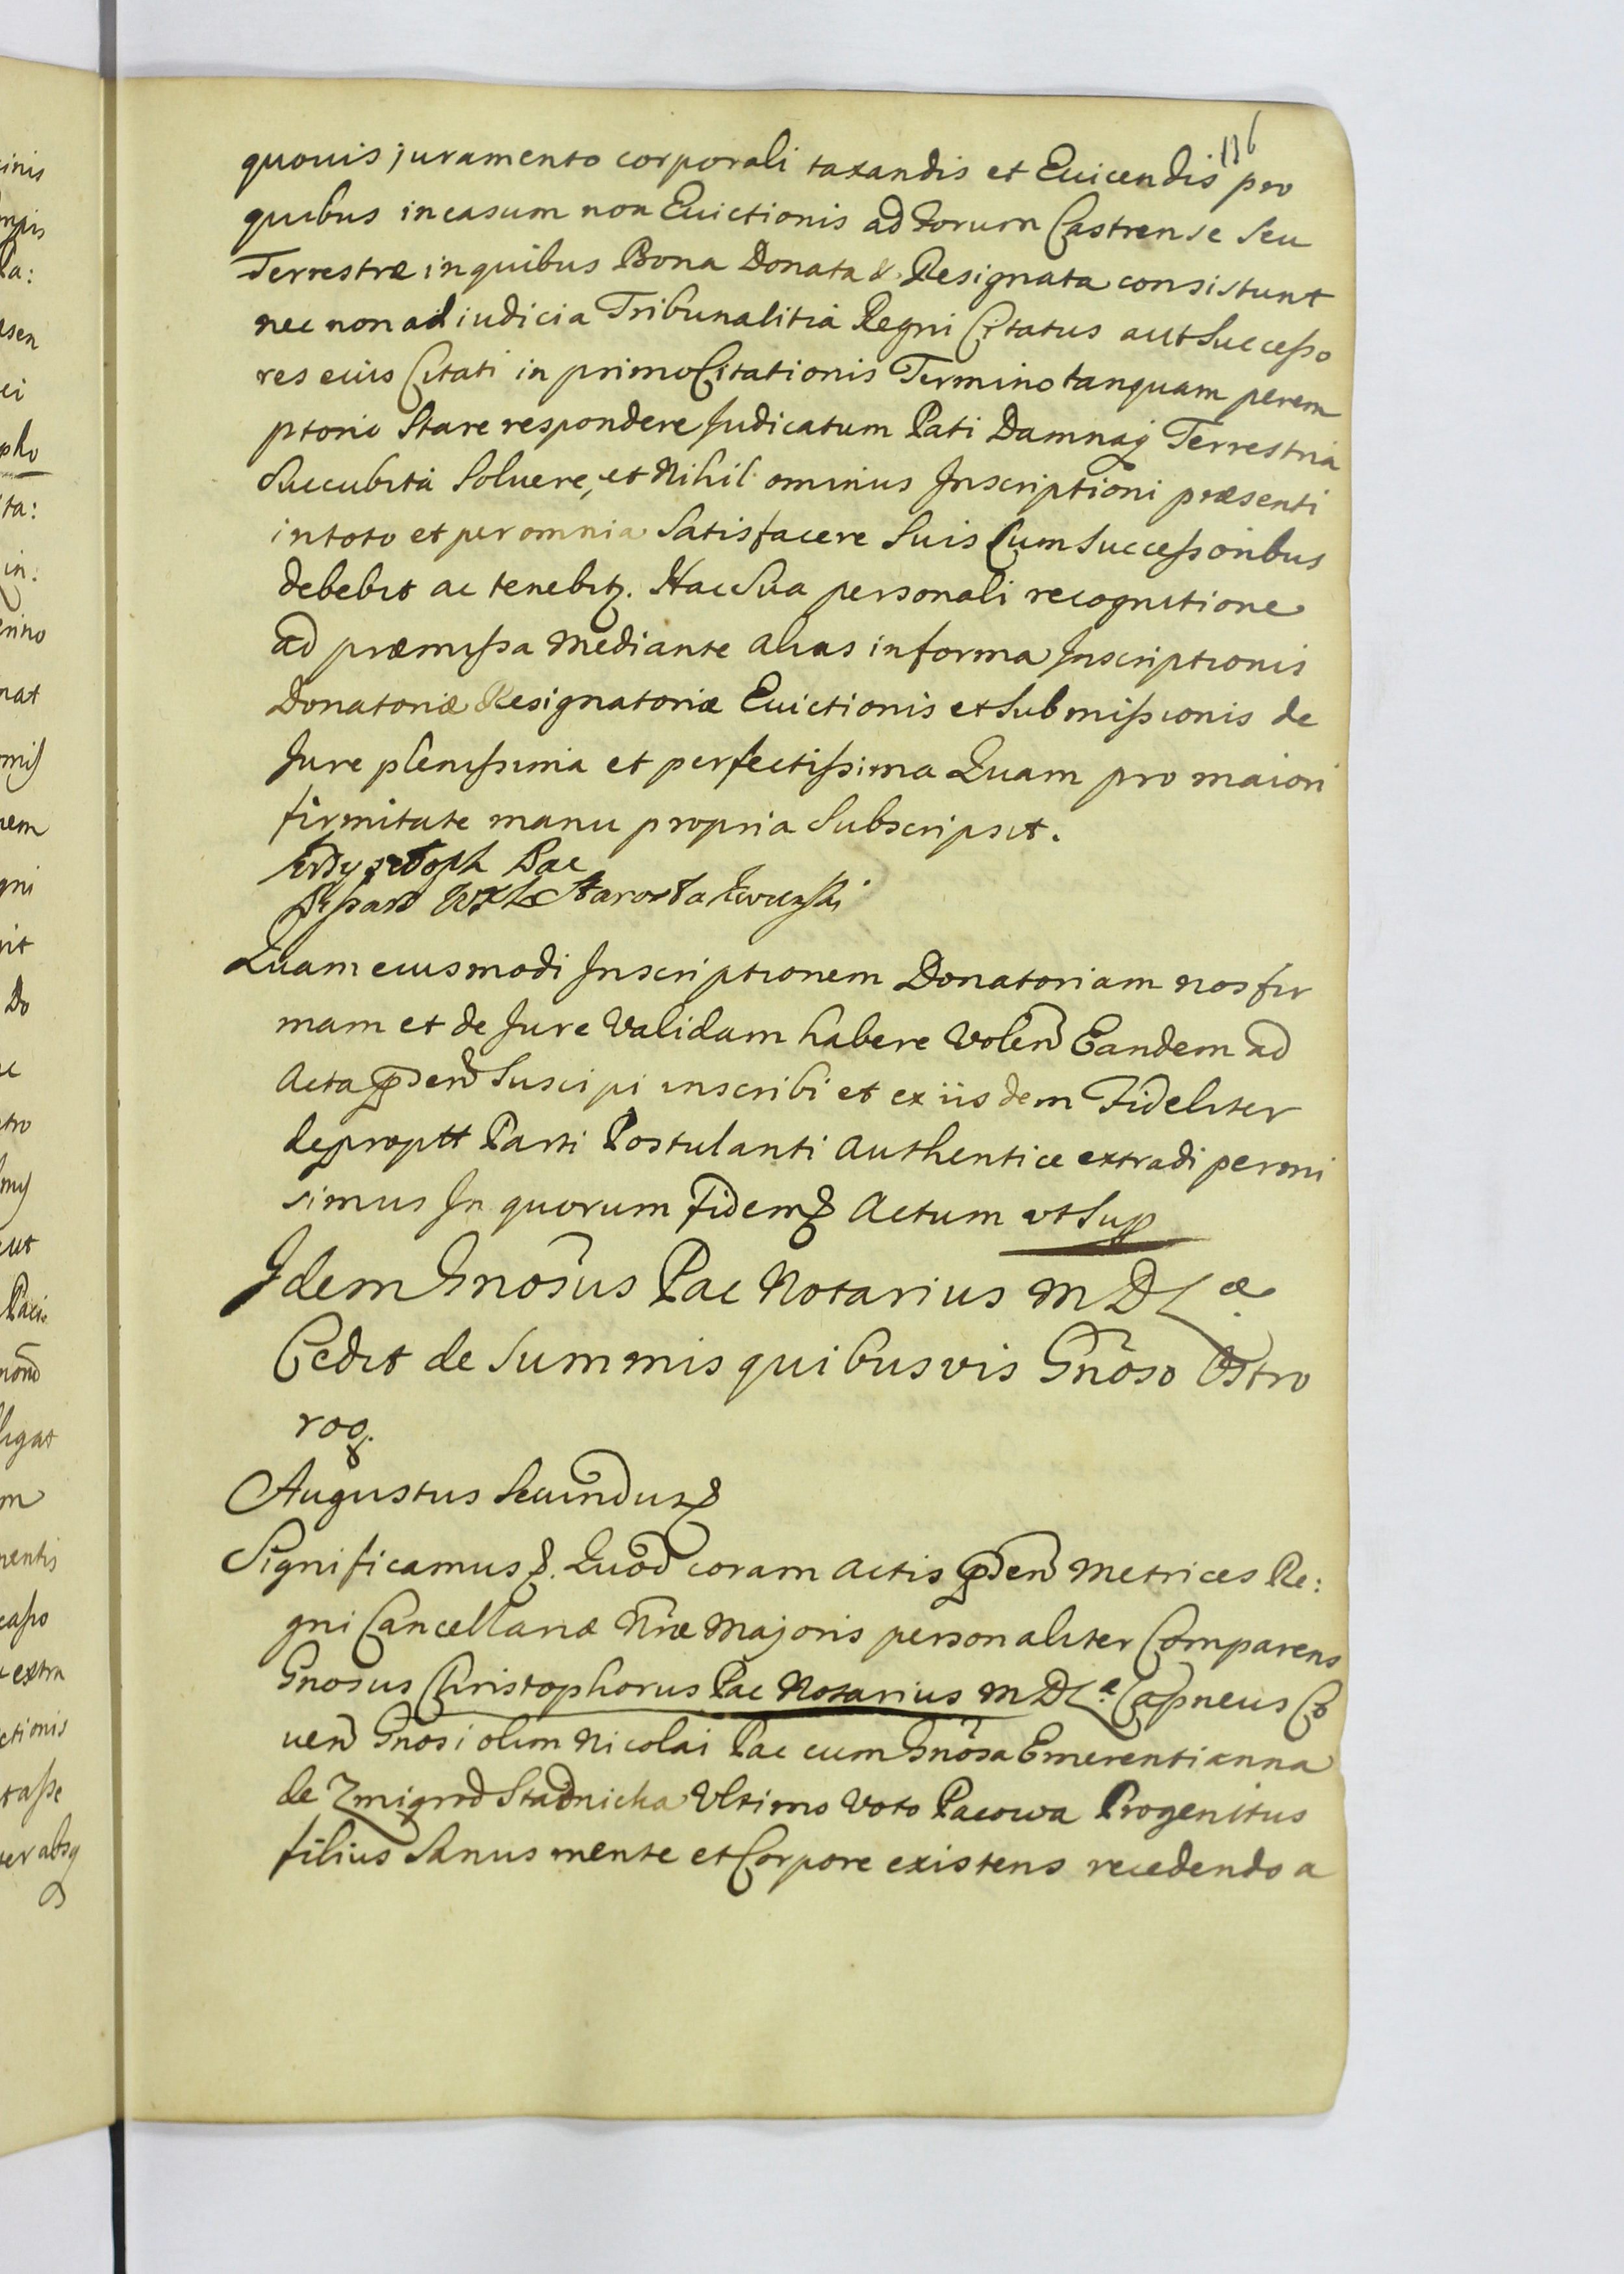 136
quouis juramento corporali taxandis et Euicendis pro
quibus in casum non Euictionis ad Forum Castrense Seu
Terrestræ in quibus Bona Donata & Resignata consistunt
nec non ad iudicia Tribunalitia Regni Citatus aut Succeßo
res eius Citati in primo Citationis Termino tanquam perem
ptorio Stare respondere Judicatum Pati Damnaq Terrestria
Succubita Soluere, et Nihil ominus Inscriptioni præsenti
in toto et per omnia Satisfacere Suis Cum Succeßoribus
debebit ac tenebitq. Hac Sua personali recognitione
ad præmißa Mediante alias in forma Inscriptionis
Donatoriæ Resignatoriæ Euictionis et Submißionis de
Jure plenißima et perfectißima Quam pro maiori
firmitate manu propria Subscripsit.
Krzysztoph Pac
Pißarz WXL Starosta
Quam eiusmodi Inscriptionem Donatoriam nos fir
mam et de Jure Validam habere Volen Eandem ad
Acta pden Suscipi inscribi et ex iisdem Fideliter
deproptt Parti Postulanti Authentice extradi permi
simus In quorum fidem & Actum ut Sup
Idem Gnosus Pac Notarius M D L æ
Cedit de Summis quibusvis Gnoso Ostro
rog.
Augustus Secundus &
Significamus &. Quod coram Actis pden Metrices Re:
gni Cancellariæ Nræ Majoris personaliter Comparens
Gnosus Christophorus Pac Notarius M D L æ Capneus Co
uen Gnosi olim Nicolai Pac cum Gnosa Emerentianna
de Zmigrod Stadnicka Vltimo Voto Pacowa Progenitus
filius Sanus mente et Corpore existens recedendo a